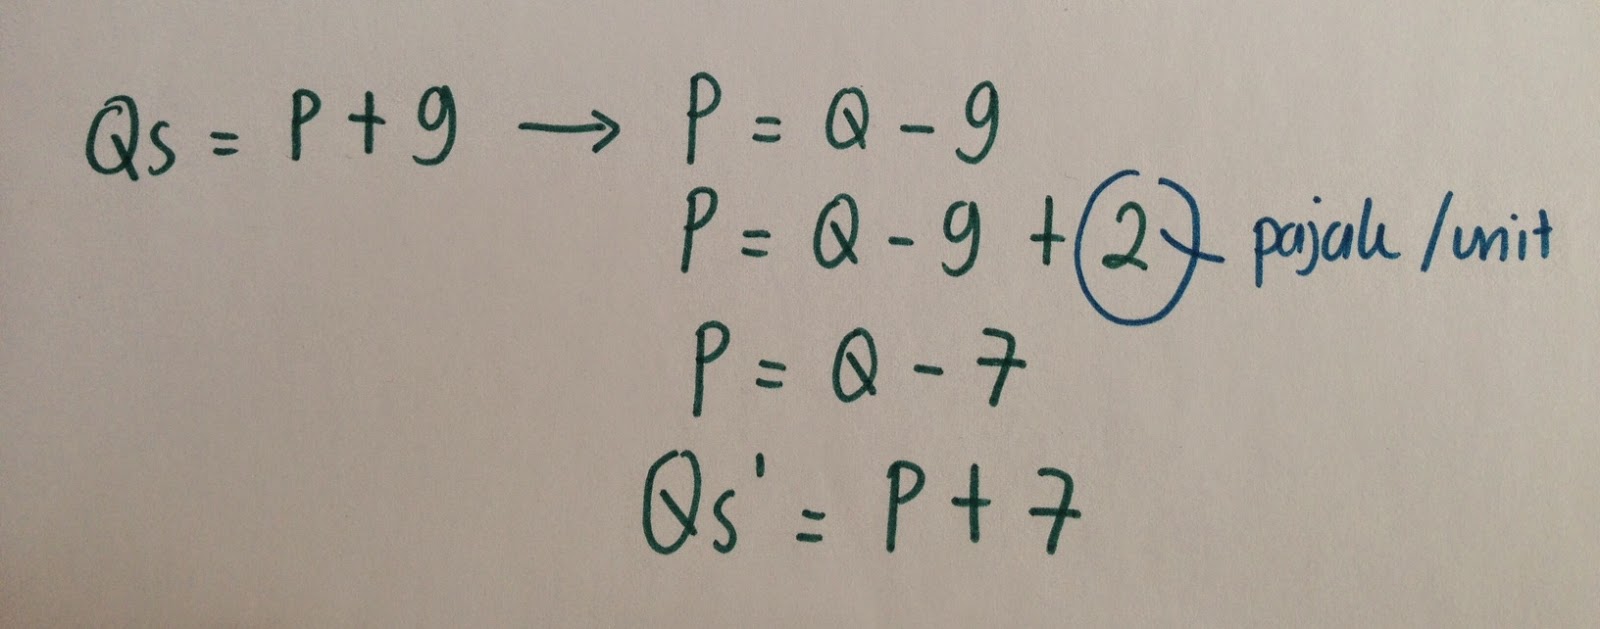 Qs = P + 9 → P = Q - 9
P = Q - 9 + 2 pajak /unit
P = Q - 7
Qs' = P + 7